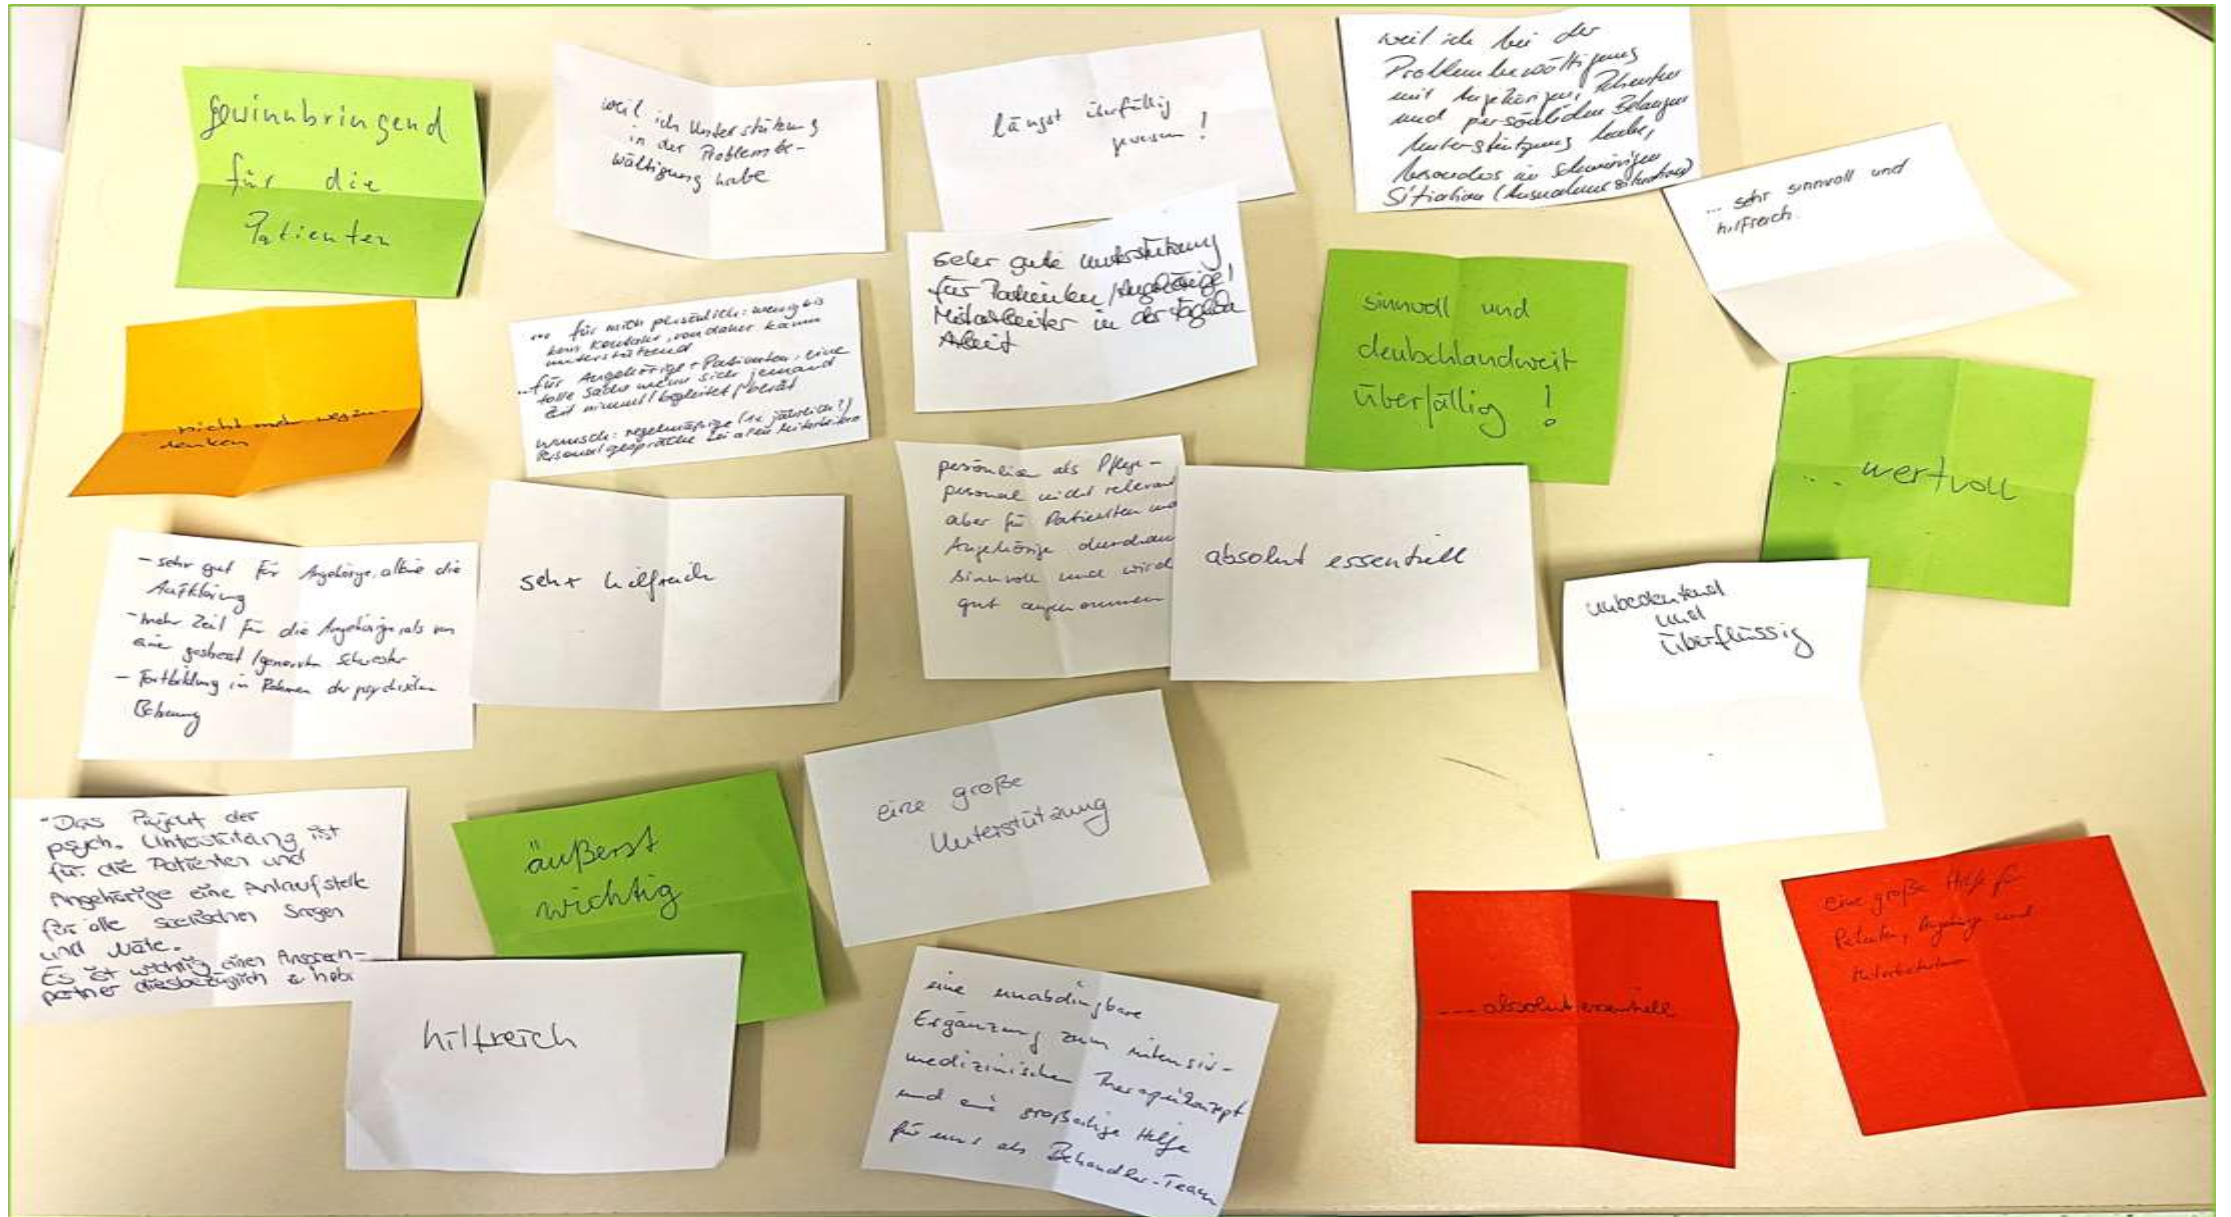 gewinnbringend
für die
Patienten
weil ich Unterstützung
in der Problembe-
wältigung habe
längst überfällig
gewesen !
weil ich bei der
Problembewältigung
mit Angehörigen, Patienten
und persönlichen Belangen
Unterstützung habe,
besonders in schwierigen
Sitiation (Ausnahmesituation)
... sehr sinnvoll und
hilfreich.
... nicht mehr wegzu-
denken
... für mich persönlich: wenig bis
kein Kontakt, von daher kaum
unterstützend
... für Angehörige + Patienten, eine
tolle Sache wenn sich jemand
Zeit nimmt / begleitet / berät
Wunsch: regelmäßige (1x jährlich?)
Personalgespräche bei allen Mitarbeitern
sehr gute Unterstützung
für Patienten / Angehörige /
Mitarbeiter in der täglichen
Arbeit
sinnvoll und
deutschlandweit
überfällig !
... wertvoll
- sehr gut für Angehörige, alleine die
Aufklärung
- mehr Zeit für die Angehörige als von
eine gestresst / genervten Schwester
- Fortbildung im Rahmen der psychischen
Betreuung
sehr hilfreich
persönlich als Pflege-
personal nicht relevant
aber für Patienten und
Angehörige durchaus
sinnvoll und wird
gut angenommen
absolut essentiell
unbedeutend
und
überflüssig
"Das Projekt der
psych. Unterstützung ist
für die Patienten und
Angehörige eine Anlaufstelle
für alle seelischen Sorgen
und Nöte.
Es ist wichtig einen Ansprech-
partner diesbezüglich zu habe
äußerst
wichtig
eine große
Unterstützung
hilfreich
eine unabdingbare
Ergänzung zum intensiv-
medizinischen Therapiekonzept
und eine großartige Hilfe
für uns als Behandler-Team
... absolut essentiell
eine große Hilfe für
Patienten, Angehörige und